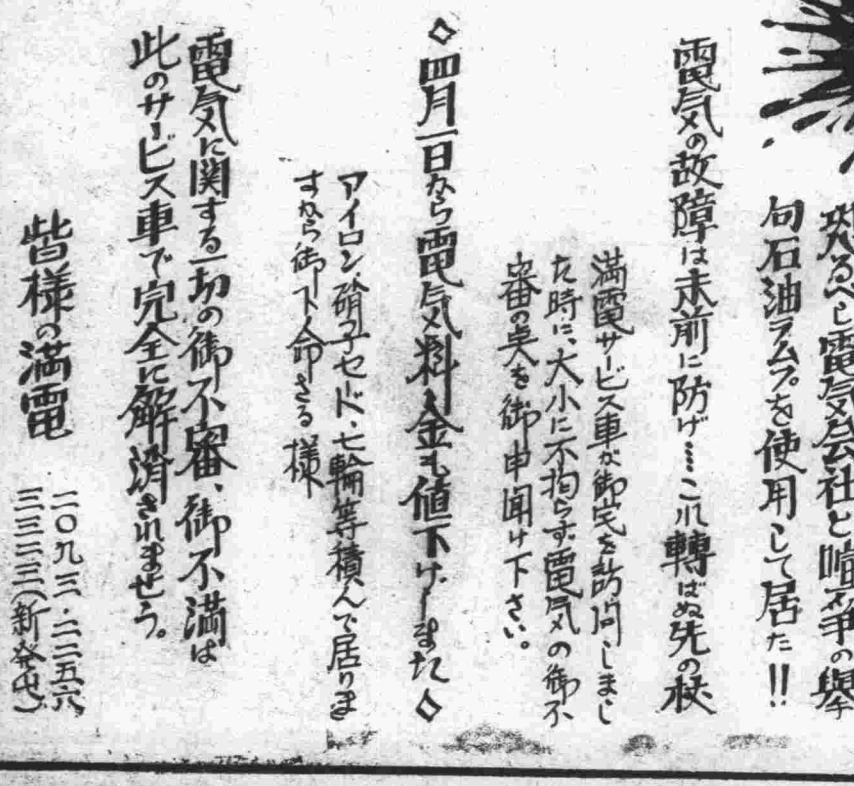 恐るべし電気会社と喧爭の擧
句石油ラムプを使用して居た!!
電気の故障は未前に防げ……これ轉ばぬ先の杖
満電サービス車が御宅を訪問しまし
た時に、大小に不拘らず電気の御不
審の点を御申聞け下さい。
◇四月一日から電気料金も値下げしました◇
アイロン、硝子セード、七輪等積んで居りま
すから御下命さる様
電気に関する一切の御不審、御不満は
此のサービス車で完全に解消されませう。
皆様の満電
二〇九三・二二五六
三三三三(新発屯)